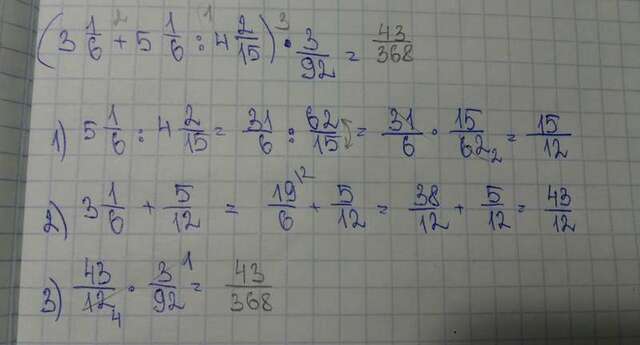 (3 1/6 + 5 1/6 : 4 2/15) · 3/92 = 43/368
1) 5 1/6 : 4 2/15 = 31/6 : 62/15 = 31/6 · 15/62 2 = 15/12
2) 3 1/6 + 5/12 = 19/6 + 5/12 = 38/12 + 5/12 = 43/12
3) 43/12 4 · 3 1/92 = 43/368